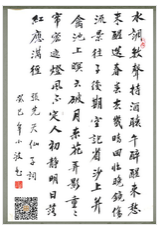 水調數聲持酒聽午醉醒來愁
未醒送春春去幾時回臨晚鏡傷
流景往事後期空記省沙上並
禽池上暝雲破月來花弄影重重
簾幕密遮燈風不定人初靜明日落
紅應滿徑 張先天仙子詞
癸巳年小波